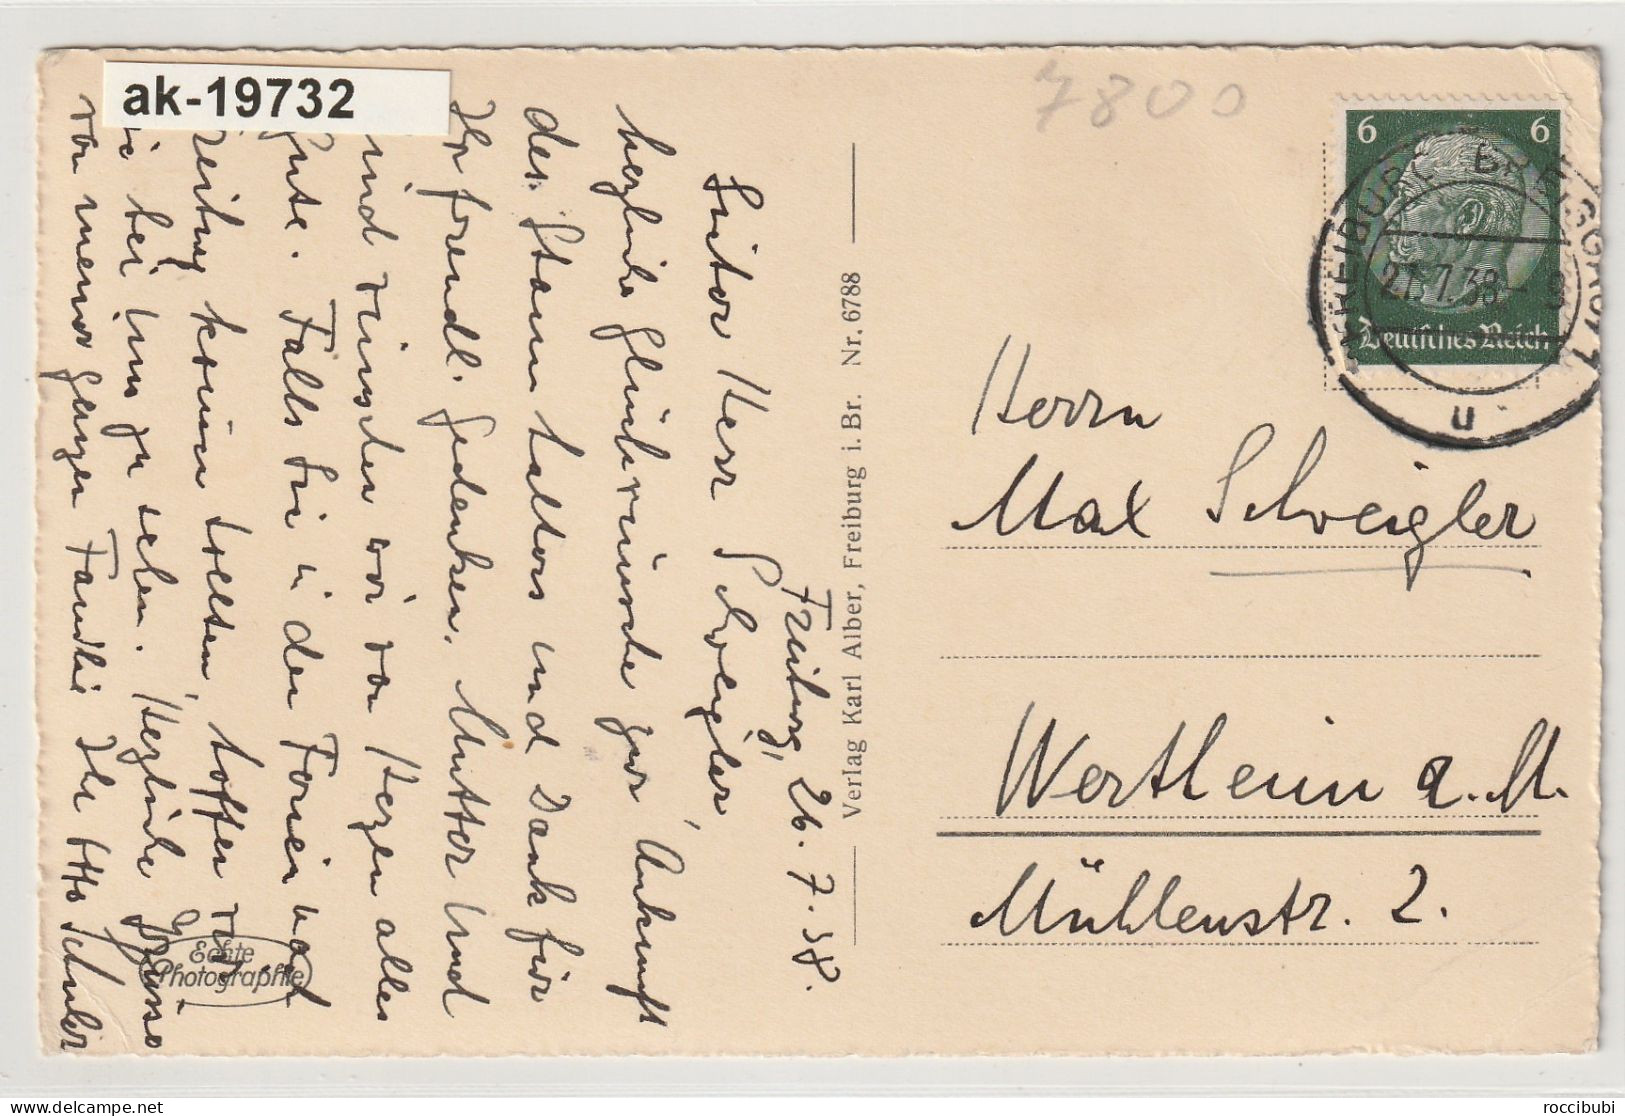 ak-19732
7800
6 6
Deutsches Reich
FREIBURG BREISGAU 1
27.7.38
u
Freiburg, 26.7.38.
Lieber Herr Schweigler,
herzliche Glückwünsche zur Ankunft
des Stammhalters und Dank für
Ihr freundl. Gedenken. Mutter und
Kind wünschen wir von Herzen alles
Gute. Falls Sie in den Ferien nach
Freiburg kommen sollten, hoffen wir,
Sie bei uns zu sehen. Herzliche Grüsse
von meiner ganzen Familie Ihr Otto Schuler
Echte
Photographie
Verlag Karl Alber, Freiburg i. Br. Nr. 6788
Herrn
Max Schweigler
Wertheim a. M.
Mühlenstr. 2.
roccibubi